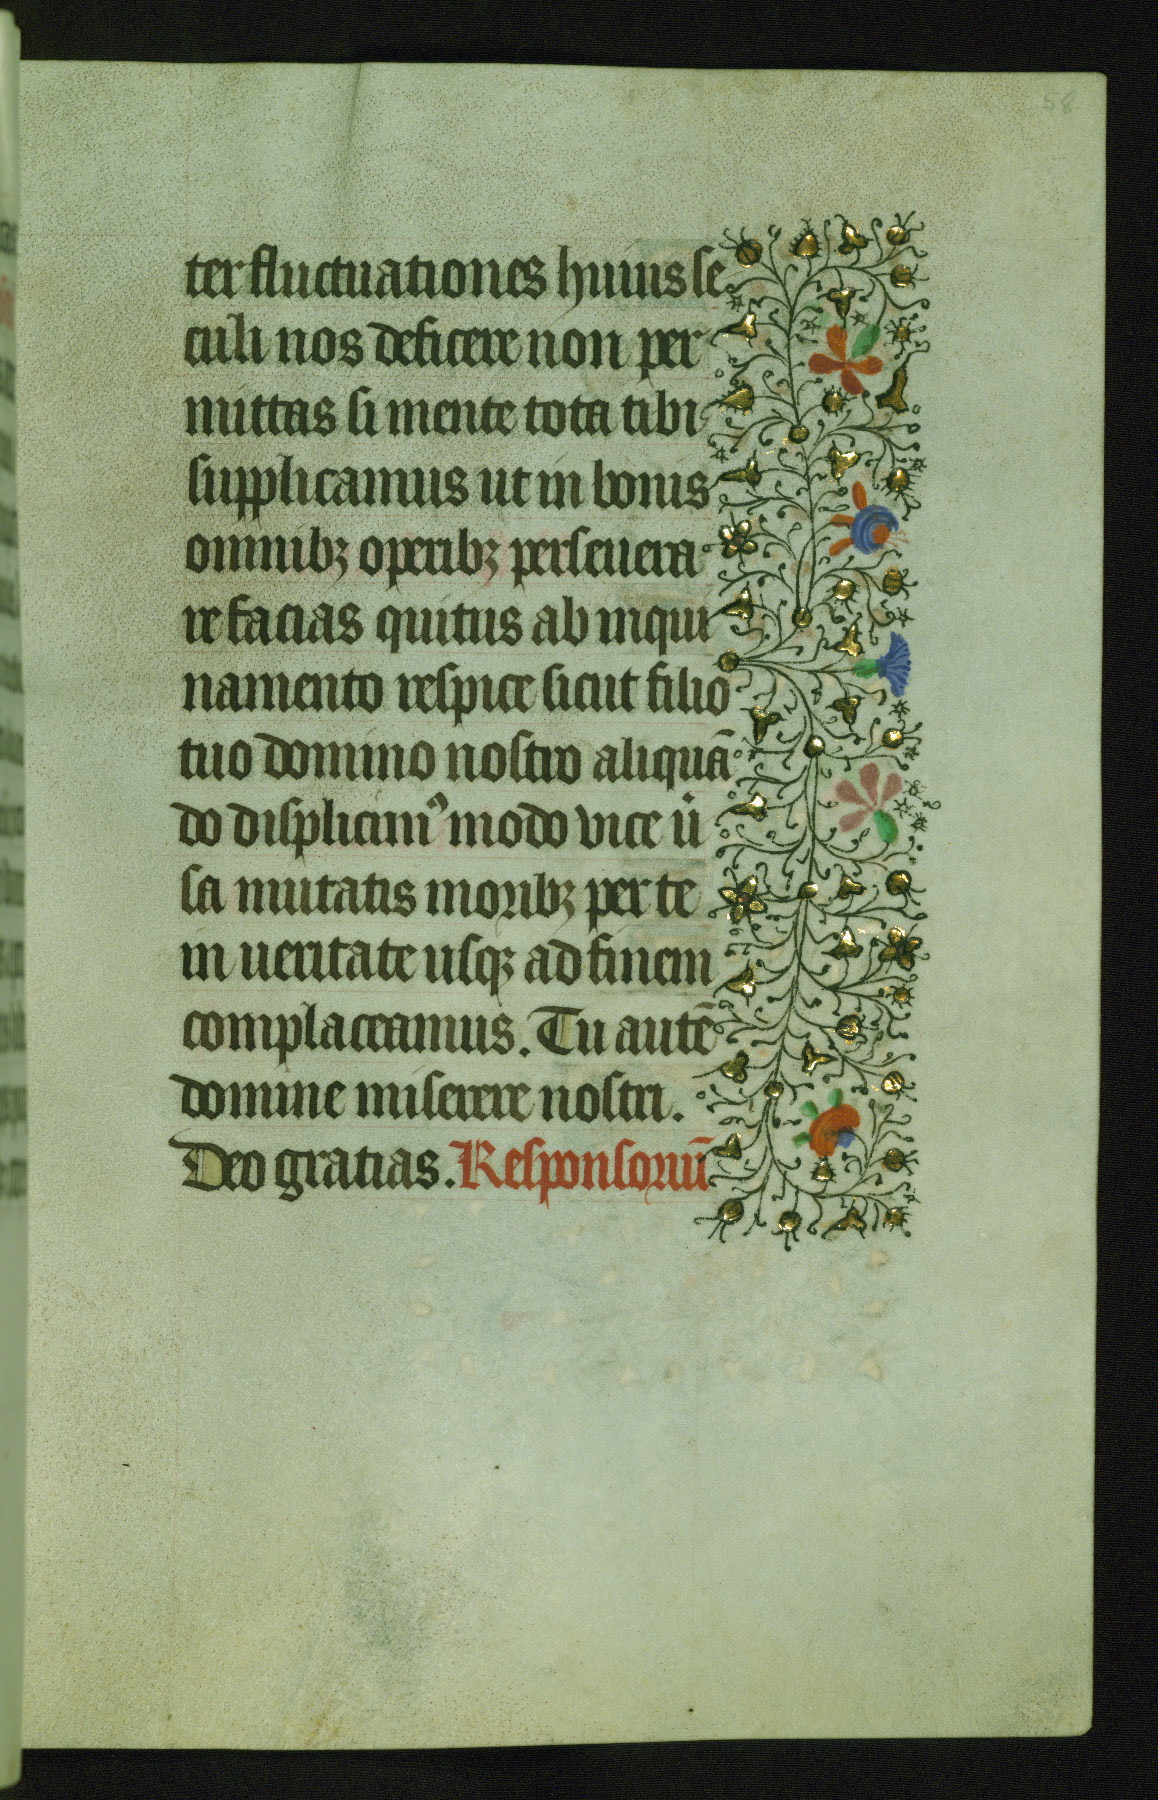 58
ter fluctuationes huius se
culi nos deficere non per
mittas si mente tota tibi
supplicamus ut in bonis
omnibꝫ operibꝫ perseuera
re facias quitus ab inqui
namento respice sicut filio
tuo domino nostro aliquā
do displicimꝰ modo vice ù
sa mutatis moribꝫ per te
in ueritate usqꝫ ad finem
complaceamus. Tu autē
domine miserere nostri.
Deo gratias. Responsoriū